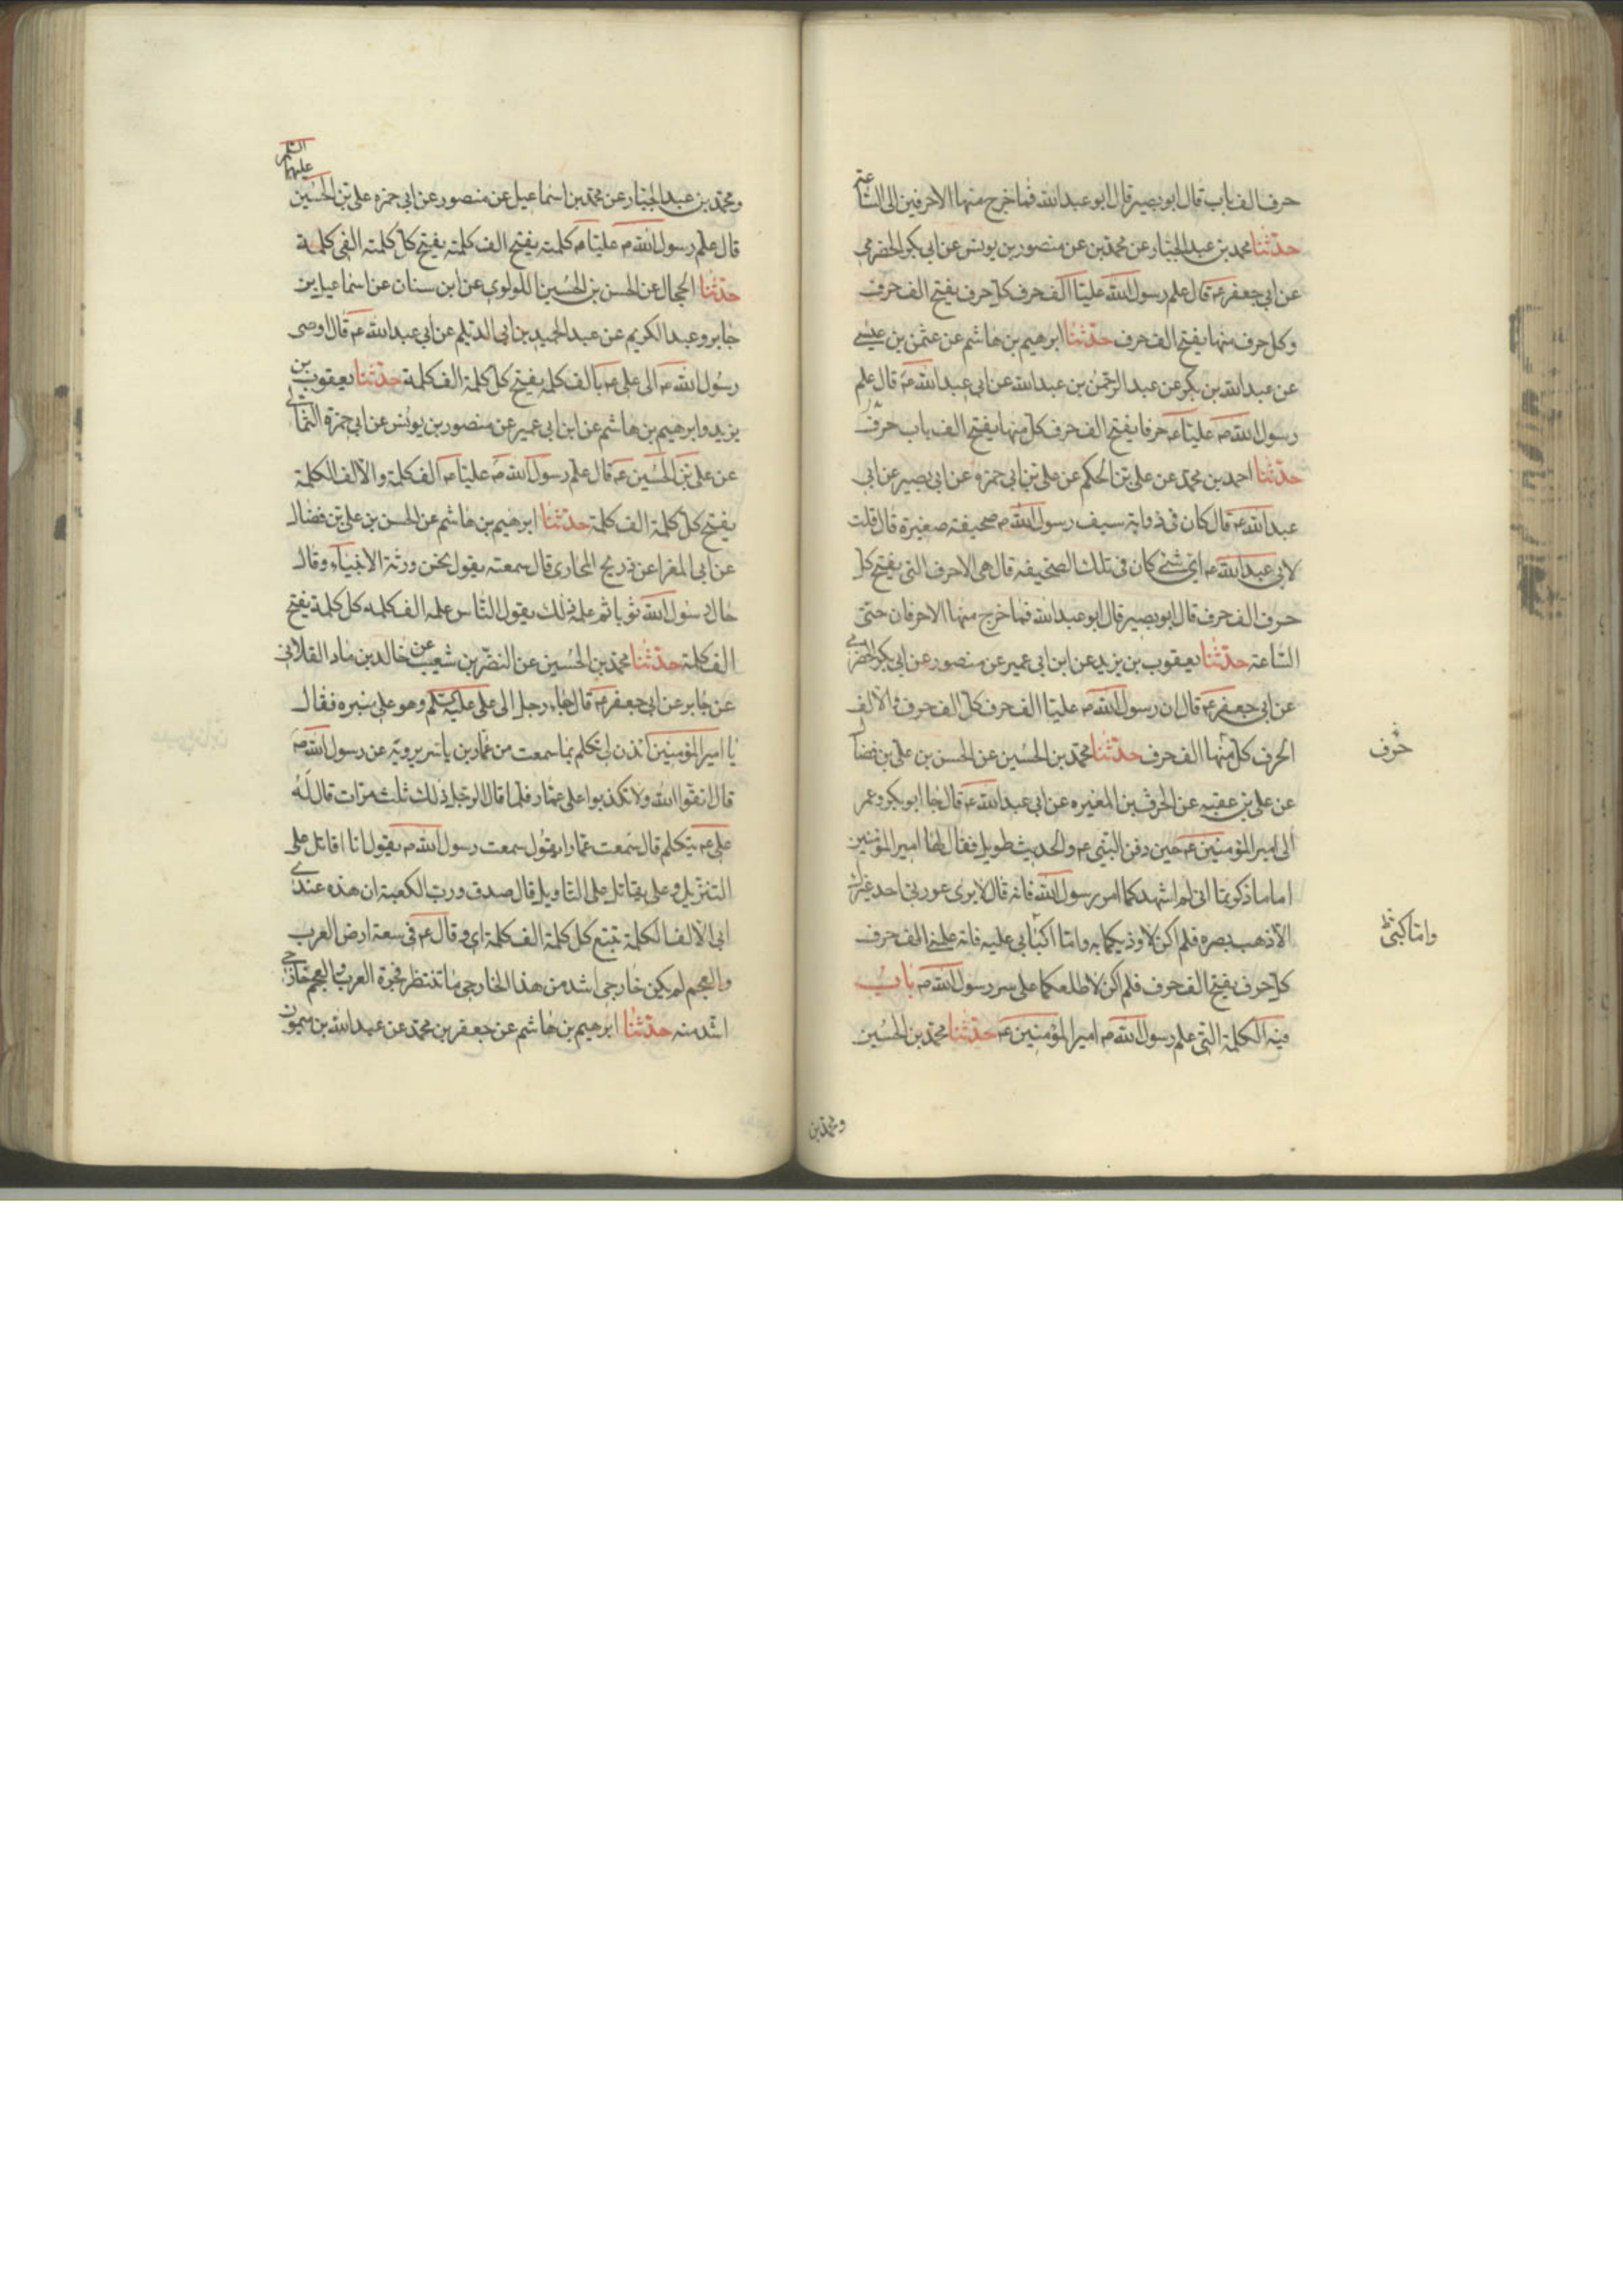 حرف الف باب قال ابو بصير قال ابو عبد الله فما خرج منها الا حرفين الى الساعة
حدثنا محمد بن عبد الجبار عن محمد بن عن منصور بن يونس عن ابى بكر الحضرمى
عن ابى جعفر عه قال علم رسول الله عليا الف حرف كل حرف يفتح الف حرف
وكل حرف منها يفتح الف حرف حدثنا ابرهيم بن هاشم عن عثمن بن عيسى
عن عبد الله بن بكر عن عبد الرحمن بن عبد الله عن ابى عبد الله عه قال علم
رسول الله صه عليا عه حرفا يفتح الف حرف كل منها يفتح الف باب حرف
حدثنا احمد بن محمد عن على بن الحكم عن على بن ابى حمزه عن ابى بصير عن ابى
عبد الله عه قال كان فى ذوابة سيف رسول الله صه صحيفة صغيرة قال قلت
لابى عبد الله عه اى شئ كان فى تلك الصحيفه قال هى الاحرف التى يفتح كل
حرف الف حرف قال ابو بصير قال ابو عبد الله فما خرج منها الا حرفان حتى
الساعة حدثنا يعقوب بن يزيد عن ابن ابى عمير عن منصور عن ابى بكر الحضرمى
عن ابى جعفر عه قال ان رسول الله صه عليا الف حرف كل الف حرف والالف
الحرف كل منها الف حرف حدثنا محمد بن الحسين عن الحسن بن على بن فضال
حرف
عن على بن عقبه عن الحرث بن المغيره عن ابى عبد الله عه قال جا ابو بكر وعمر
الى امير المؤمنين عه حين دفن النبى عه والحديث طويل فقال لهما امير المؤمنين
اما ما ذكرتما انى لم اشهدكما امر رسول الله فانه قال لا يرى عورتى احد غيرك
الا ذهب بصره فلم اكن لاوذيكما به واما اكبابى عليه فانه علمنى الف حرف
واما كبى
كل حرف يفتح الف حرف فلم اكن لاطلعكما على سر رسول الله صه باب
فيه الكلمة التى علم رسول الله صه امير المؤمنين عه حدثنا محمد بن الحسين
ومحمد بن
السلم
عليهما
ومحمد بن عبد الجبار عن محمد بن اسماعيل عن منصور عن ابى حمزه على بن الحسين
قال علم رسول الله صه عليا عه كلمته يفتح الف كلمته يفتح كل كلمته الفى كلمة
حدثنا الحجال عن الحسن بن الحسين اللولوى عن ابن سنان عن اسماعيل بن
جابر وعبد الكريم عن عبد الحميد بن ابى الديلم عن ابى عبد الله عه قال اوصى
رسول الله صه الى على عه بالف كلمه يفتح كل كلمة الف كلمة حدثنا يعقوب بن
يزيد وابرهيم بن هاشم عن ابن ابى عمير عن منصور بن يونس عن ابى حمزة الثمالى
عن على بن الحسين عه قال علم رسول الله صه عليا عه الف كلمة والالف الكلمة
يفتح كل كلمة الف كلمة حدثنا ابرهيم بن هاشم عن الحسن بن على بن فضال
عن ابى المغرا عن ذريح المحاربى قال سمعته يقول نحن ورثة الانبياء وقال
جال رسول الله ثوبا ثم علمه ذلك يقول الناس علمه الف كلمه كل كلمة يفتح
الف كلمة حدثنا محمد بن الحسين عن النضر بن شعيب عن خالد بن ماد القلانى
عن جابر عن ابى جعفر عه قال جاء رجل الى على عليه السلم وهو على منبره فقال
يا امير المؤمنين ائذن لى تكلم بما سمعت من عمار بن ياسر يرويه عن رسول الله صه
قال اتقوا الله ولا تكذبوا على عمار فلما قال الرجل ذلك ثلث مرات قال له
على عه تكلم قال سمعت عمارا يقول سمعت رسول الله صه يقول انا اقاتل على
التنزيل وعلى يقاتل على التاويل قال صدق ورب الكعبة ان هذه عندى
الالف الكلمة تتبع كل كلمة الف كلمة وقال عه فى سعة ارض العرب
والعجم لم يكن خارجى اشد من هذا الخارجى العرب والعجم خارجى
اشد منه حدثنا ابرهيم بن هاشم عن جعفر بن محمد عن عبد الله بن ميمون